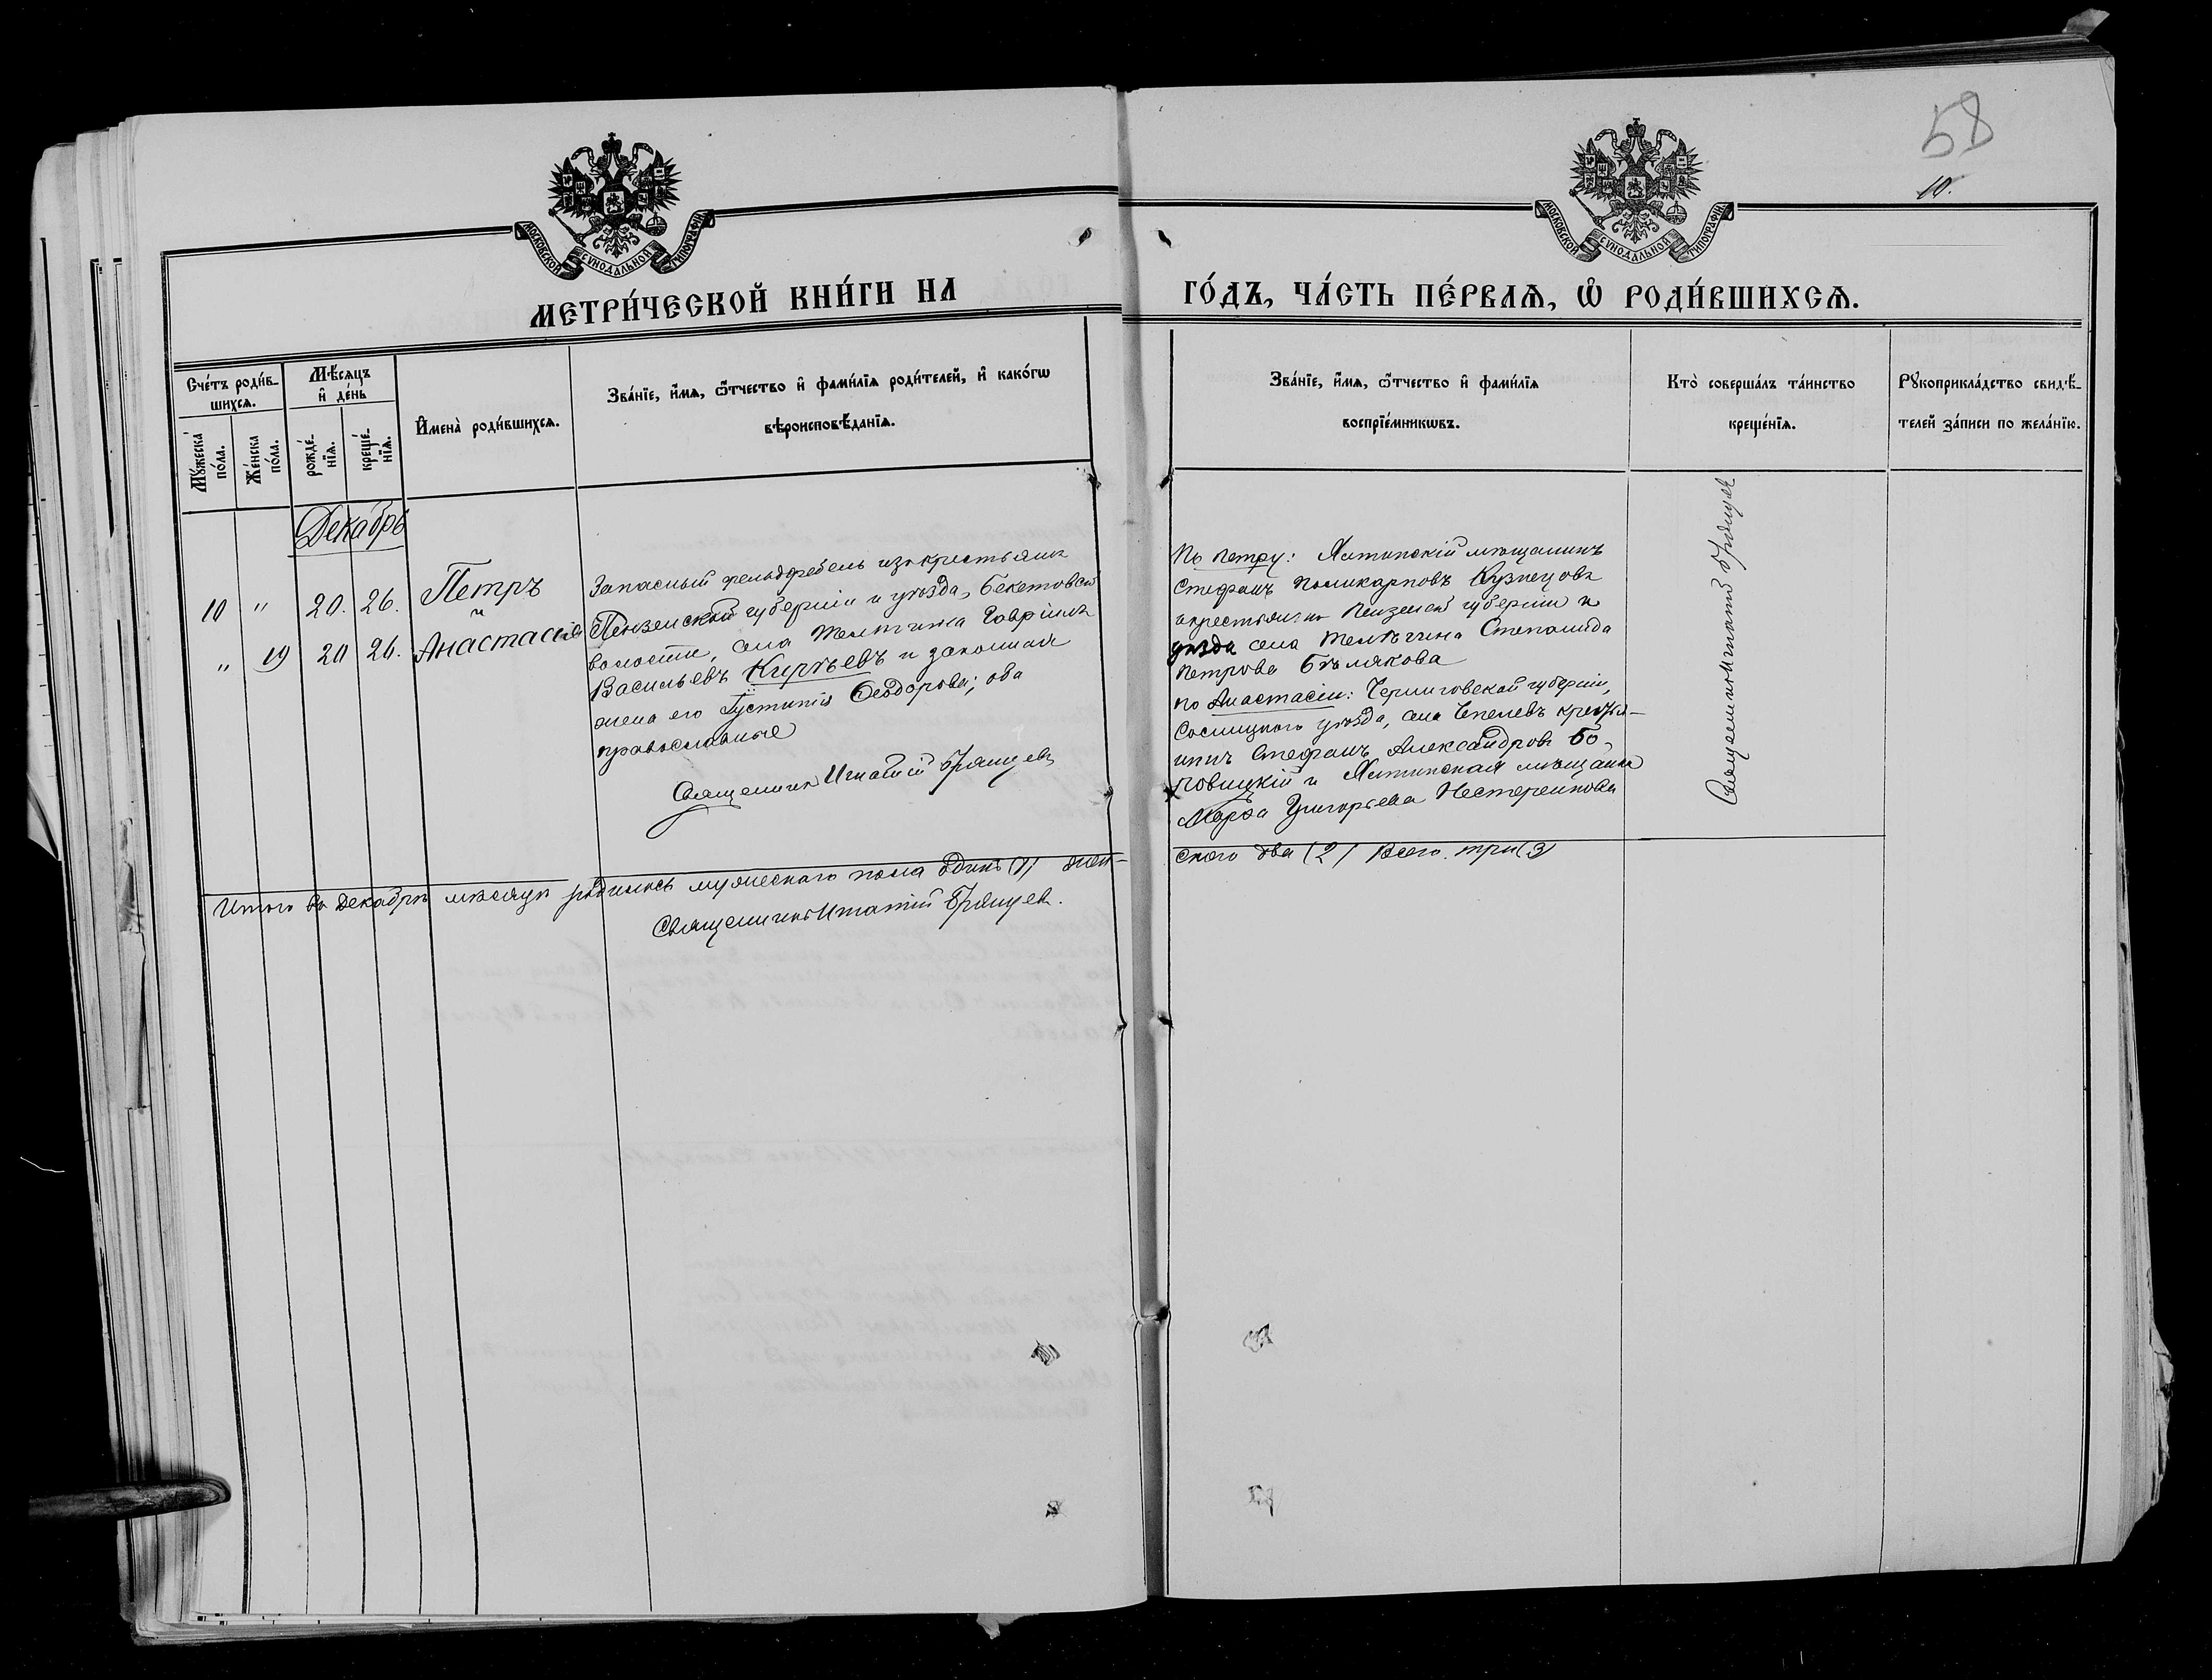 58
10.
МОСКОВСКОЙ СѴНОДАЛЬНОЙ ТИПОГРАФІИ
МОСКОВСКОЙ СѴНОДАЛЬНОЙ ТИПОГРАФІИ
МЕТРИ́ЧЕСКОЙ КНИ́ГИ НА
ГО́ДЪ, ЧА́СТЬ ПЕ́РВАѦ, Ѡ҆ РОДИ́ВШИХСѦ.
Сче́тъ роди́в-
шихсѧ.
Мѣ́сѧцъ
и҆ де́нь
Мꙋ́жеска
по́ла.
Же́нска
по́ла.
рожде́-
нїѧ.
креще́-
нїѧ.
И҆мена̀ роди́вшихсѧ.
Зва́нїе, и҆́мѧ, ѻ҆́тчество и҆ фами́лїѧ роди́телей, и҆ како́гѡ
вѣроисповѣ́данїѧ.
Зва́нїе, и҆́мѧ, ѻ҆́тчество и҆ фами́лїѧ
воспрїе́мникѡвъ.
Кто̀ соверша́лъ та́инство
креще́нїѧ.
Рꙋкоприкла́дство свидѣ́-
телей за́писи по жела́нїю.
Декабрь
10 " 20. 26. Петръ
и
" 19 20 26. Анастасія
Запасный фельдфебель изъ крестьянъ
Пензенской губерніи и уѣзда, Бекетовской
волости, села Гавріилъ
Васильевъ Кирѣевъ и законная
жена его Іустинія Ѳеодорова; оба
православные
Священникъ Игнатій Брянцевъ
По Петру: Ялтинскій мѣщанинъ
Стефанъ Поликарповъ Кузнецовъ
и крестьянка Пензенской губерніи и
уѣзда села Степанида
Петрова Бѣлякова
по Анастасіи: Черниговской губерніи,
Сосницкаго уѣзда, села крестья-
нинъ Стефанъ Александровъ Бо-
и Ялтинская мѣщанка
Марѳа Григорьева Нестеренкова
Священникъ Игнатій Брянцевъ
Итого въ Декабрѣ мѣсяцѣ родилось мужескаго пола одинъ (1) жен-
скаго два (2) Всего три (3)
Священникъ Игнатій Брянцевъ.